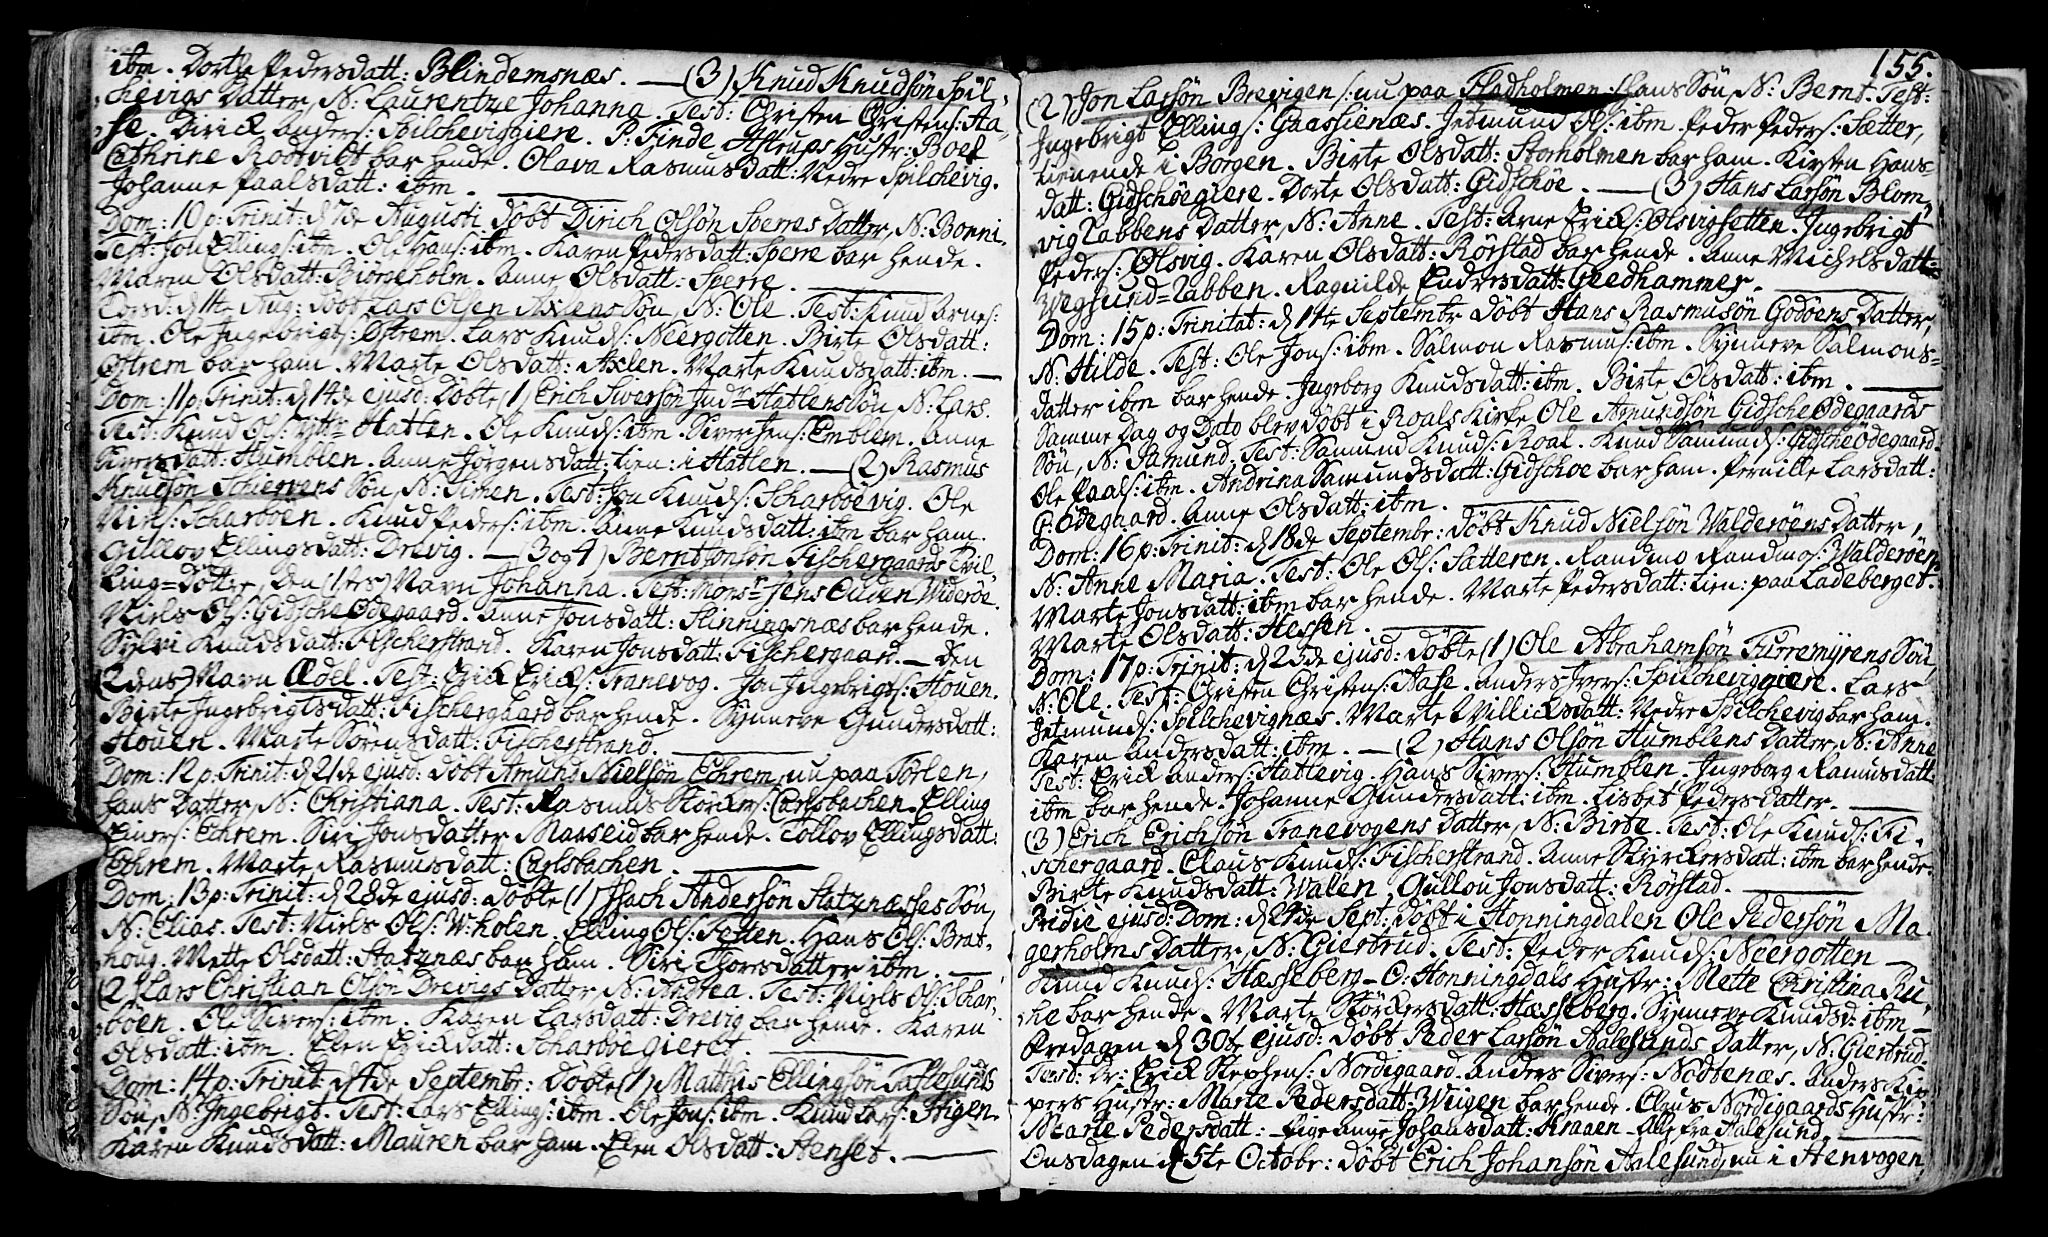 ibm. Dorte Pedersdatt: Blindemsnæs. — (3) Knud Knudsön Spil,
chevigs Datter, N: Laurentze Johanna. Test: Christen Christens: Aa,
se. Dirick Anders: Spilcheviggiere. P: Finde Astrups Hustr: Boel
Cathrine Rodtvidt bar hende. Olava Rasmusdatt: Nedre Spilchevig.
Johanne Paalsdatt: ibm. —
Dom: 10 p: Trinit: d 7de Augusti döbt Dirich Olsön Sperres Datter, N: Bonni.
Test: Jon Ellings: ibm. Ole Hans: ibm. Karen Pedersdatt: Sperre bar hende.
Maren Olsdatt: Biörgeholm. Anne Olsdatt: Sperre. —
Torsd: d 11te Aug: döbt Lars Olsen Axlens Sön, N: Ole. Test: Knud Arnes:
ibm. Ole Ingebrigts: Östrem. Lars Knuds: Neergotten. Birte Olsdatt:
Östrem bar ham. Marte Olsdatt: Axlen. Marte Knudsdatt: ibm. —
Dom: 11 p: Trinit: d 14de ejusd: Döbte (1) Erich Siversön Indre Hatlens Sön, N: Lars.
Test: Knud Ols: Yttr Hatlen. Ole Knuds: ibm. Siver Jens: Emblem. Anne
Siversdatt: Humblen. Anne Jörgensdatt: tien: i Hatlen. — (2) Rasmus
Knudsön Schiervens Sön, N: Simen. Test: Jon Knuds: Scharboevig. Ole
Nils: Scharboen. Knud Peders: ibm. Anne Knudsdatt: ibm bar ham.
Gullov Ellingsdatt: Drevig. — (3 og 4) Bernt Jonsön Fischergaards Tvil,
ling-döttre, den (1stes) Navn Johanna. Test: Mons: Jens Ouden Wideröe.
Niels Ols: Gidsche Ödegaard. Anne Jonsdatt: Slinningsnæs bar hende.
Sylvi Knudsdatt: Fischerstrand. Karen Jonsdatt: Fischergaard. — Den
(2dens) Navn Ædel. Test: Erick Ericks: Tranevog. Jon Ingebrigts: Houen.
Birte Ingebrigtsdatt: Fischergaard bar hende. Synneve Gundersdatt:
Houen. Marte Sörensdatt: Fischerstrand. —
Dom: 12 p: Trinit: d 21de ejusd: döbt Amund Nielsön Echrem, nu paa Törlen,
hans Datter, N: Christiana. Test: Rasmus Störkers: Carlsbachen. Elling
Echrem. Siri Jonsdatter Marseid bar hende. Tollov Ellingsdatt:
Echrem. Marte Rasmusdatt: Carlsbachen. —
Dom: 13 p: Trinit: d 28de ejusd: döbte (1) Isach Andersön Slatznæsses Sön,
N: Elias. Test: Niels Ols: W:holen. Elling Ols: Fetten. Hans Ols: Brat,
houg. Mette Olsdatt: Slatznæs bar ham. Siri Thorsdatter ibm. —
(2) Lars Christian Olsön Drevigs Datter, N: Andrea. Test: Niels Ols: Schar,
boen. Ole Sivers: ibm. Karen Larsdatt: Drevig bar hende. Karen
Olsdatt: ibm. Elen Erickdatt: Scharboegieret. —
Dom: 14 p: Trinit: d 4de Septembr: Döbte (1) Matthis Ellingsön Aalesunds
Sön, N: Ingebrigt. Test: Lars Ellings: ibm. Ole Jons: ibm. Knud Lars: Stigen.
Karen Knudsdatt: Mauren bar ham. Elen Olsdatt: Henset. —
155.
(2) Jon Larsön Brevigen /: nu paa Fladholmen :/ hans Sön, N: Bernt. Test:
Ingebrigt Ellings: Gaassienæs. Jedmund Ols: ibm. Peder Peders: Sætter,
tienende i Borgen. Birte Olsdatt: Storholmen bar ham. Kirsten Hans-
datt: Gidschöegiere. Dorte Olsdatt: Gidschöe. — (3) Hans Larsön Blom,
vig Labbens Datter, N: Anne. Test: Arne Ericks: Olsvigsetten. Ingebrigt
Peders: Olsvig. Karen Olsdatt: Rörstad bar hende. Anne Michelsdatt:
Wegsund-Labben. Ragnilde Endresdatt: Geedhammer. —
Dom: 15 p: Trinitat: d 11te Septembr döbt Hans Rasmusön Godöens Datter,
N: Hilde. Test: Ole Jons: ibm. Salmon Rasmus: ibm. Synneve Salmons-
datter ibm bar hende. Ingeborg Knudsdatt: ibm. Birte Olsdatt: ibm. —
Samme Dag og Dato blev döbt i Roals Kirke Ole Amundsön Gidsche Ödegaards
Sön, N: Amund. Test: Samund Knuds: Roal. Knud Samunds: Gidsche Ödegaard.
Ole Paals: ibm. Andrina Samundsdatt: Gidschöe bar ham. Pernille Larsdatt:
G: Ödegaard. Anne Olsdatt: ibm. —
Dom: 16 p: Trinit: d 18de Septembr: döbt Knud Nielsön Walderöens Datter,
N: Anne Maria. Test: Ole Ols: Satteren. Randmo Randmos: Walderöen.
Marte Jonsdatt: ibm bar hende. Marte Pedersdatt: tien: paa Ladeberget.
Marte Olsdatt: Hessen. —
Dom: 17 p: Trinit: d 25de ejusd: döbte (1) Ole Abrahamsön Furremyrens Sön,
N: Ole. Test: Christen Christens: Aase. Anders Ivers: Spilcheviggiere. Lars
Jetmunds: Spilchevignæs. Marte Villicksdatt: Nedre Spilchevig bar ham.
Karen Andersdatt: ibm. — (2) Hans Olsön Humblens Datter, N: Anne
Test: Erick Anders: Hatlevig. Hans Sivers: Humblen. Ingeborg Rasmusdatt:
ibm bar hende. Johanne Gundersdatt: ibm. Lisbet Pedersdatter. —
(3) Erich Erichsön Tranevogens Datter, N: Birte. Test: Ole Knuds: Fi,
schergaard. Claus Knuds: Fischerstrand. Anne Styrckersdatt: ibm bar hende.
Birte Knudsdatt: Walen. Gullou Jonsdatt: Rörstad. —
Pridie ejusd: Dom: d 24de Sept: döbt i Honningdalen Ole Pedersön Ma,
gerholms Datter, N: Giertrud. Test: Peder Knuds: Neergotten —
Knud Knuds: Hæsseberg — O: Honningdals Hustr: Mette Christina Ru,
he bar hende. Marte Störkersdatt: Hæsseberg. Synneve Knudsd: ibm —
Fredagen d 30te ejusd: döbt Peder Larsön Aalesunds Datter, N: Giertrud.
Test: Sr: Erick Stephens: Nordigaard. Anders Sivers: Nödtenæs. Anders Kip,
pers Hustr: Marte Pedersdatt: Weigen bar hende. Claus Nordigaards Hustr:
Marte Pedersdatt: Pige Anne Johansdatt: Kraaen — alle fra Aalesund. —
Onsdagen d 5te Octobr: döbt Erich Johansön Aalesund, nu i Stenvogen